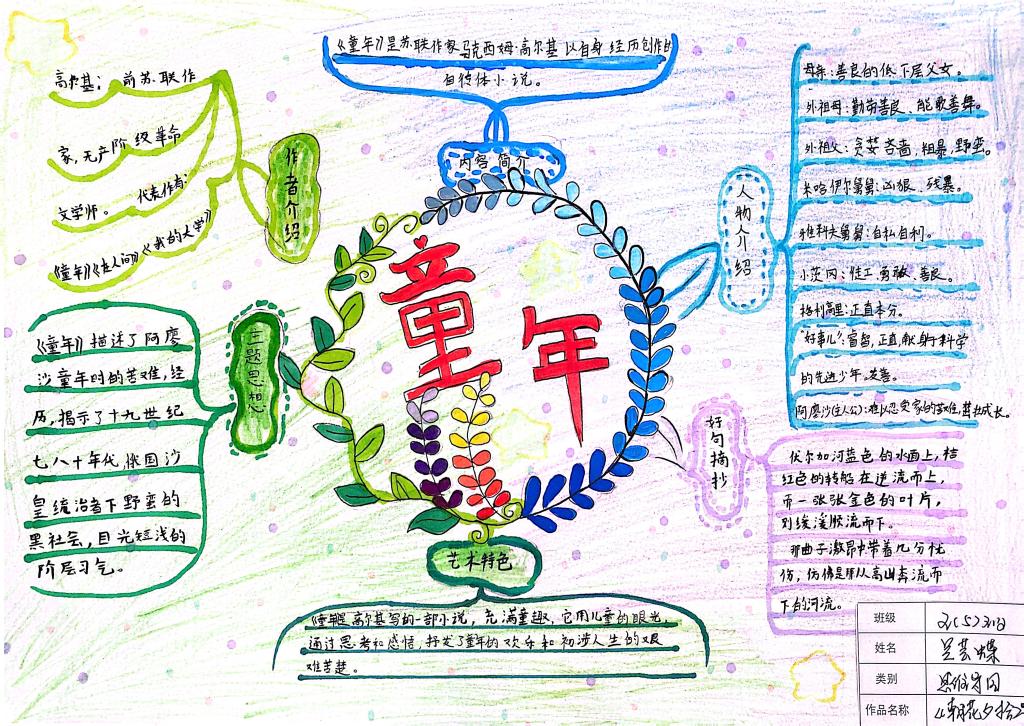 《童年》是苏联作家马克西姆·高尔基以自身经历创作的
自传体小说。
内容简介
高尔基：前苏联作
家,无产阶级革命
文学师。代表作有:
《童年》《在人间》《我的大学》
作者介绍
童年
人物介绍
母亲:善良的低下层父女。
外祖母:勤劳善良、能歌善舞。
外祖父:贪婪吝啬,粗暴,野蛮。
米哈伊尔舅舅:凶狠、残暴。
雅科夫舅舅:自私自利。
小茨冈:佳工 勇敢 善良。
格利高里:正直本分。
"好事儿":富态,正直,献身于科学
的先进少年。友善。
阿廖沙(主人公):难以忘家的苦难,茁壮成长。
主题思想
《童年》描述了阿廖
沙童年时的苦难,经
历,揭示了十九世纪
七八十年代,俄国沙
皇统治者下野蛮的
黑社会,目光短浅的
阶层习气。
好句摘抄
伏尔加河蓝色的水面上,桔
红色的转船在逆流而上,
而一张张金色的叶片,
则缓缓顺流而下。
那曲子激昂中带着几分忧
伤,仿佛是那从高山奔流而
下的河流。
艺术特色
《童年》是高尔基写的一部小说,充满童趣,它用儿童的眼光,
通过思考和感悟,抒发了童年的欢乐和初涉人生的艰
难苦楚。
班级
姓名
类别 思维导图
作品名称 《朝花夕拾》